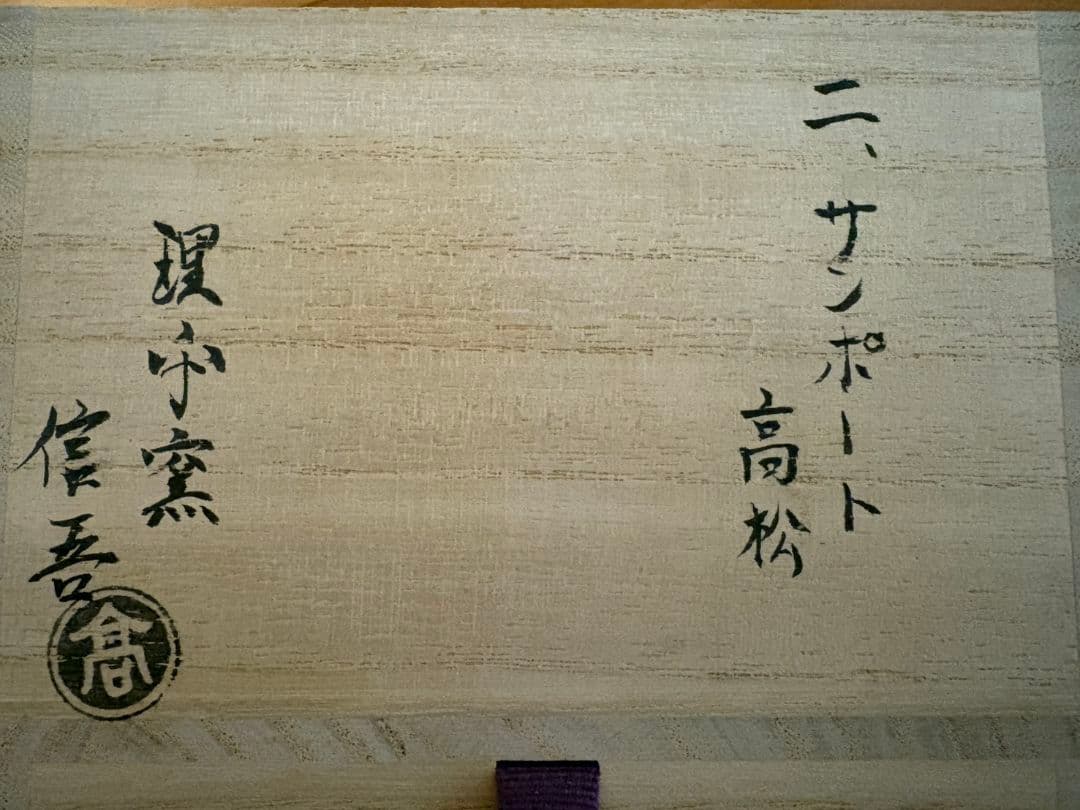 二、サンポート
高松
理平窯
信吾
髙